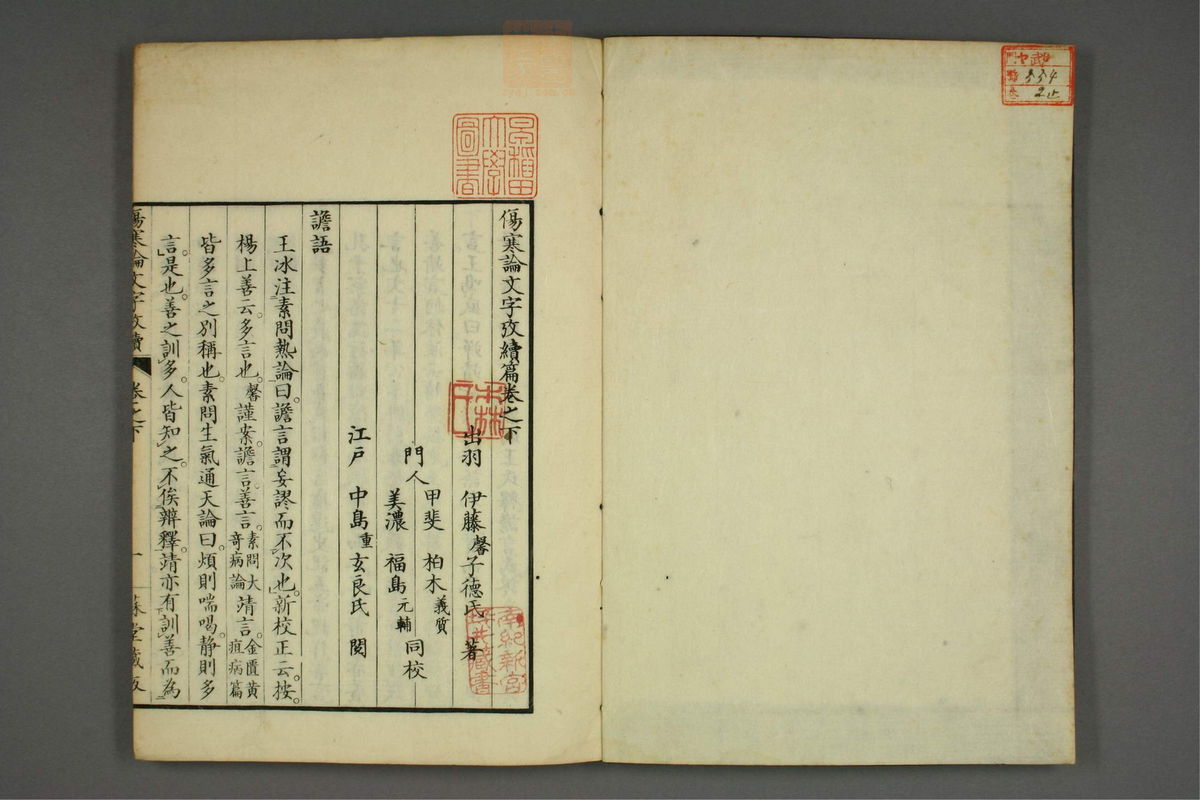 傷寒論文字攷續篇卷之下
出羽 伊藤馨子德氏 著
門人
甲斐 柏木義質
美濃 福島元輔
同校
江戸 中島重玄良氏 閱
譫語
王冰注素問熱論曰。譫言謂妄謬而不次也。新校正云。按。
楊上善云。多言也。馨謹案譫言。善言。素問大奇病論靖言。金匱黃疸病篇
皆多言之別稱也。素問生氣通天論曰。煩則喘喝。靜則多
言。是也。善之訓多。人皆知之。不俟辨釋。靖亦有訓善而為
傷寒論文字攷續 卷之下 一
早稲田大學圖書